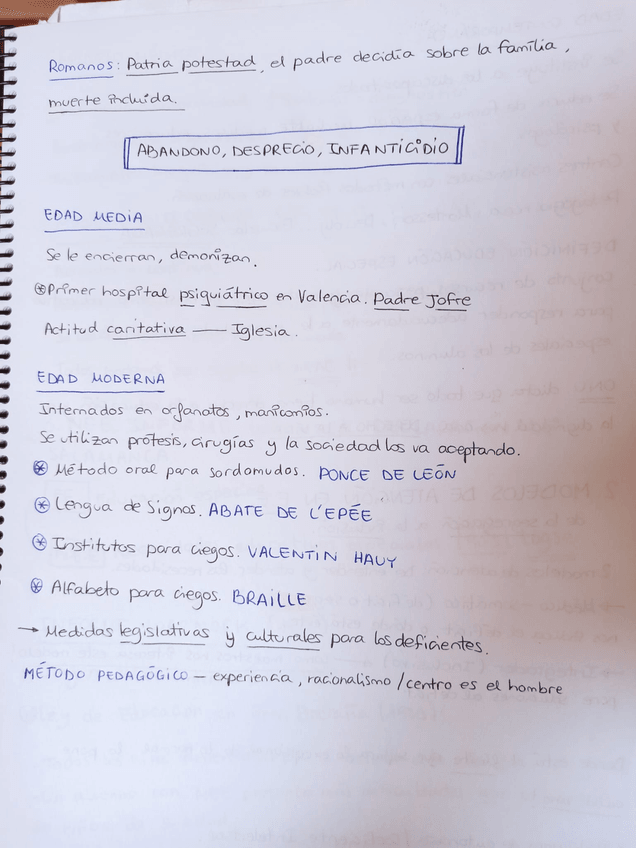 Romanos: Patria potestad, el padre decidía sobre la familia,
muerte incluida.
ABANDONO, DESPRECIO, INFANTICIDIO
EDAD MEDIA
Se le encierran, demonizan.
*Primer hospital psiquiátrico en Valencia. Padre Jofre
Actitud caritativa — Iglesia.
EDAD MODERNA
Internados en orfanatos, manicomios.
Se utilizan prótesis, cirugías y la sociedad los va aceptando.
* Método oral para sordomudos. PONCE DE LEÓN
* Lengua de Signos. ABATE DE L'EPÉE
* Institutos para ciegos. VALENTIN HAUY
* Alfabeto para ciegos. BRAILLE
→ Medidas legislativas y culturales para los deficientes.
MÉTODO PEDAGÓGICO – experiencia, racionalismo / centro es el hombre